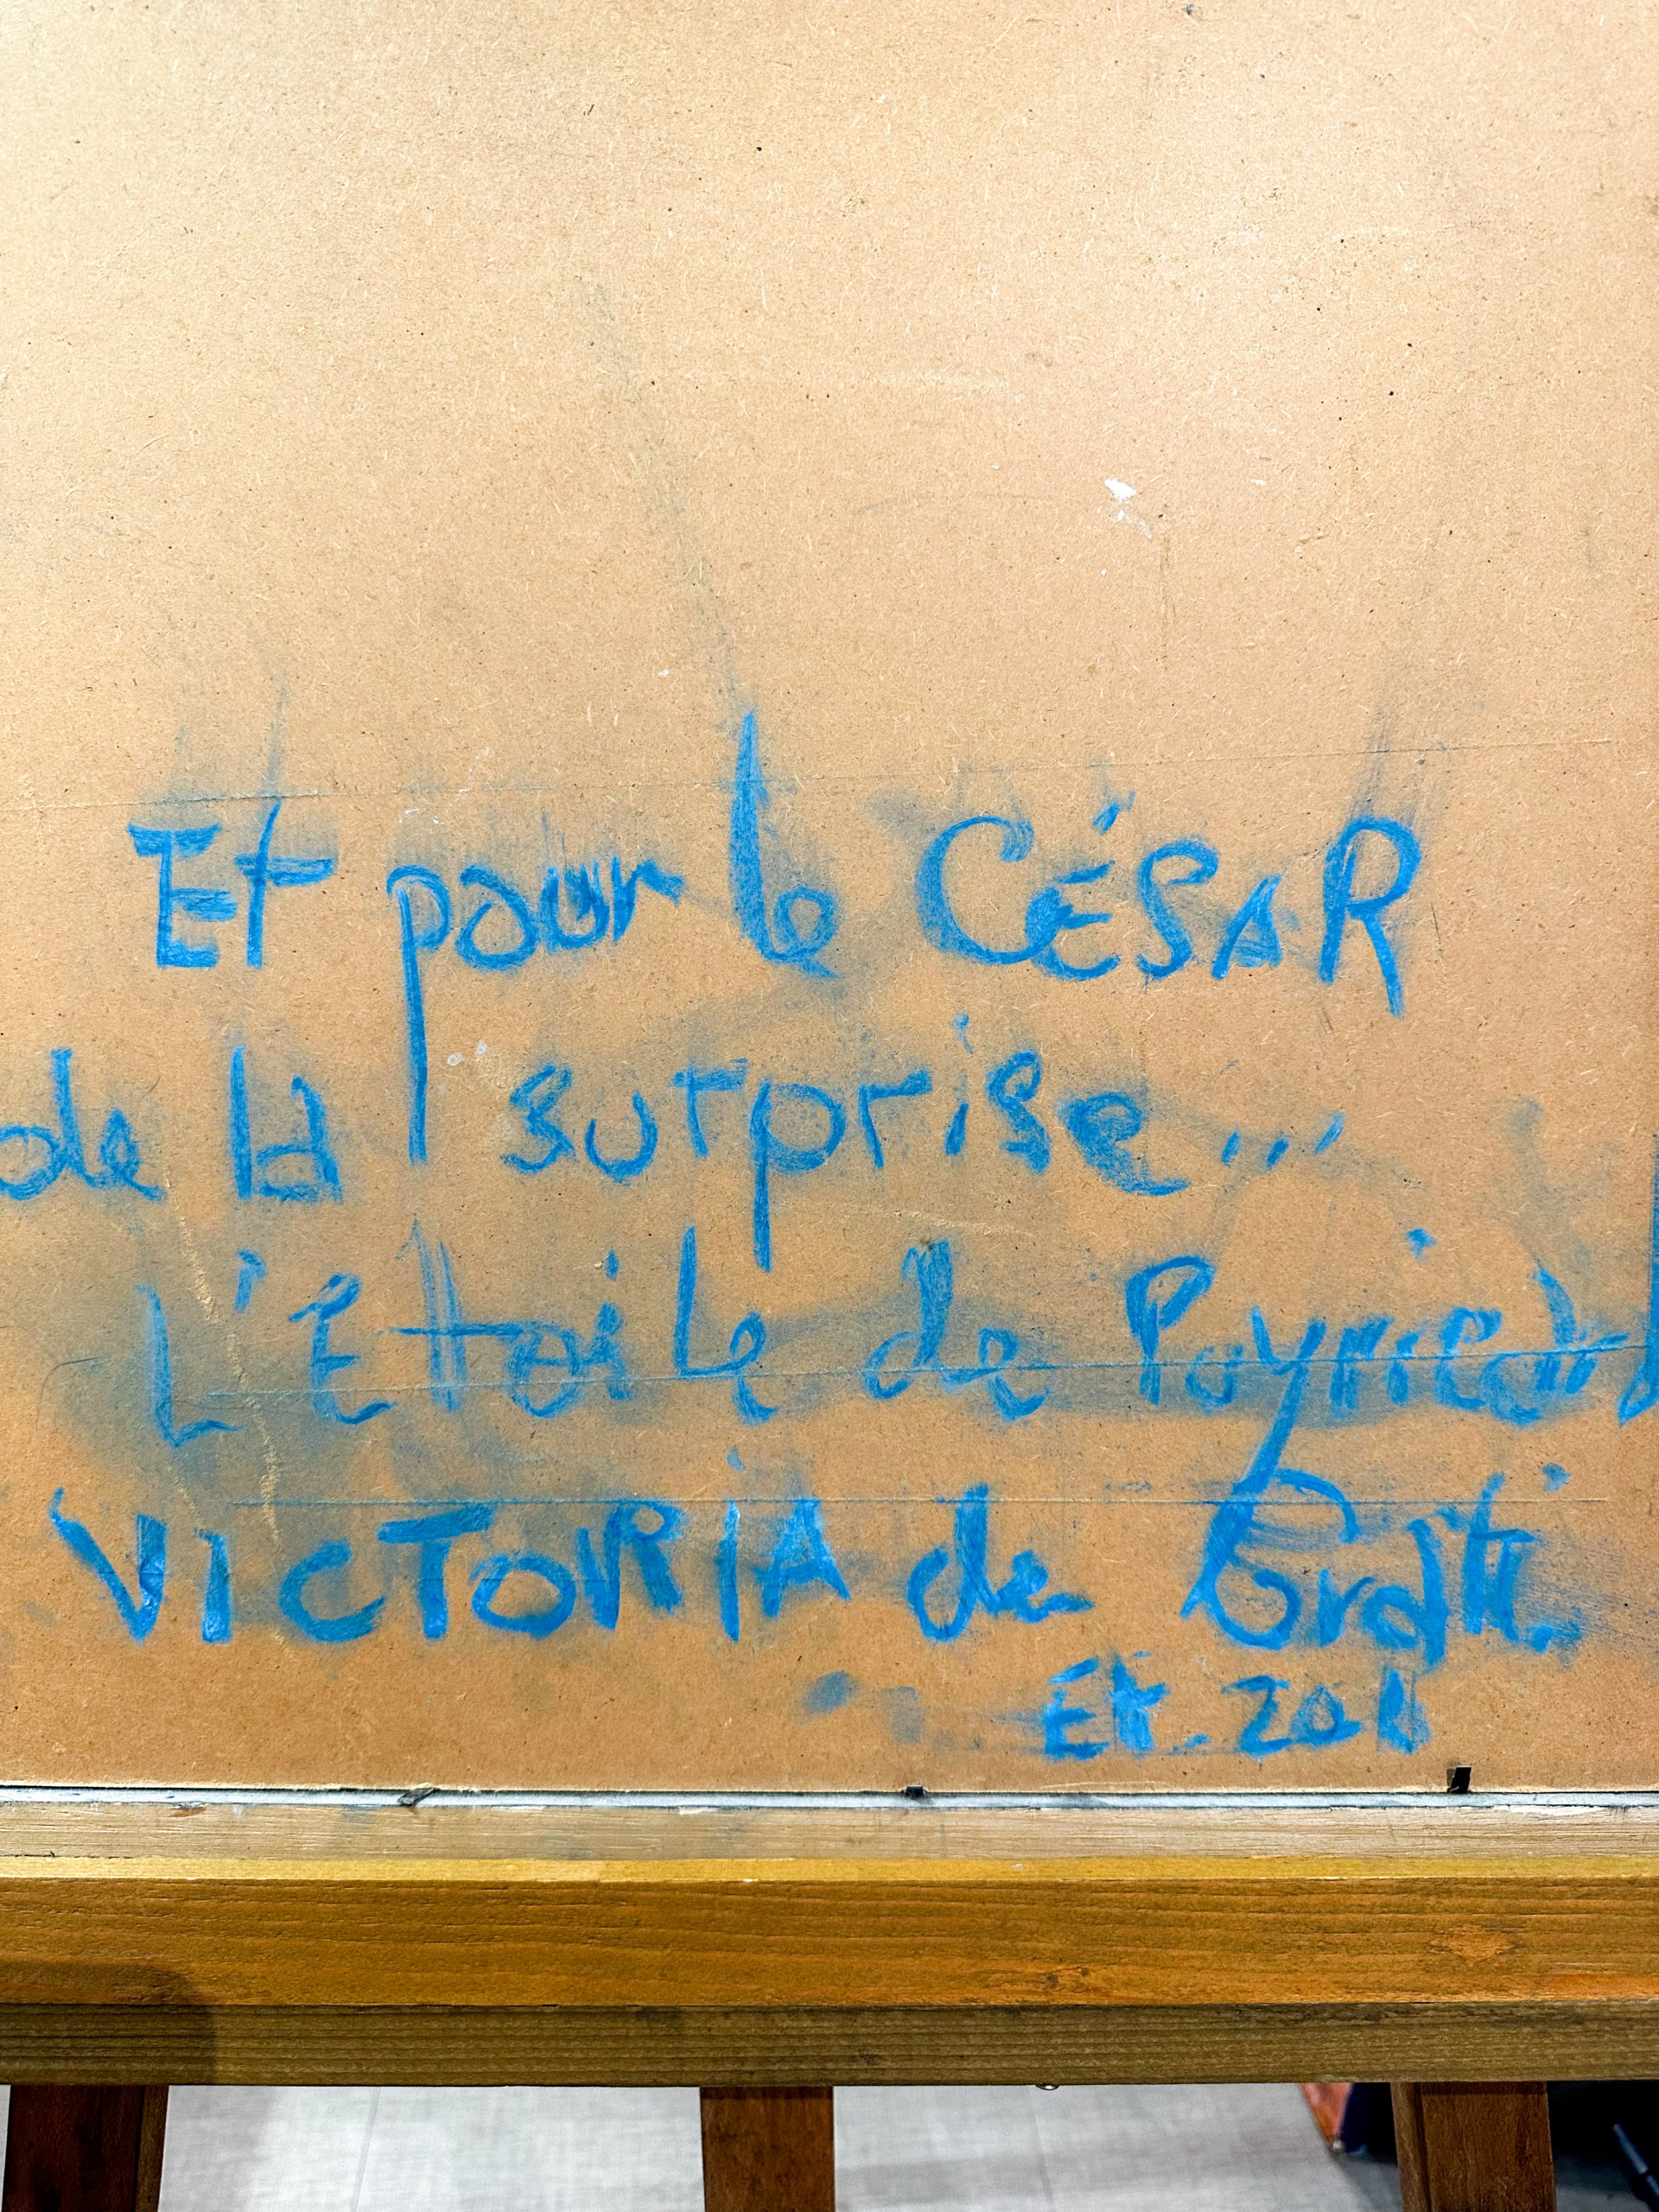 Et pour le CÉSAR
de la surprise...
L'Étoile de
VICTORIA de
Et. 201